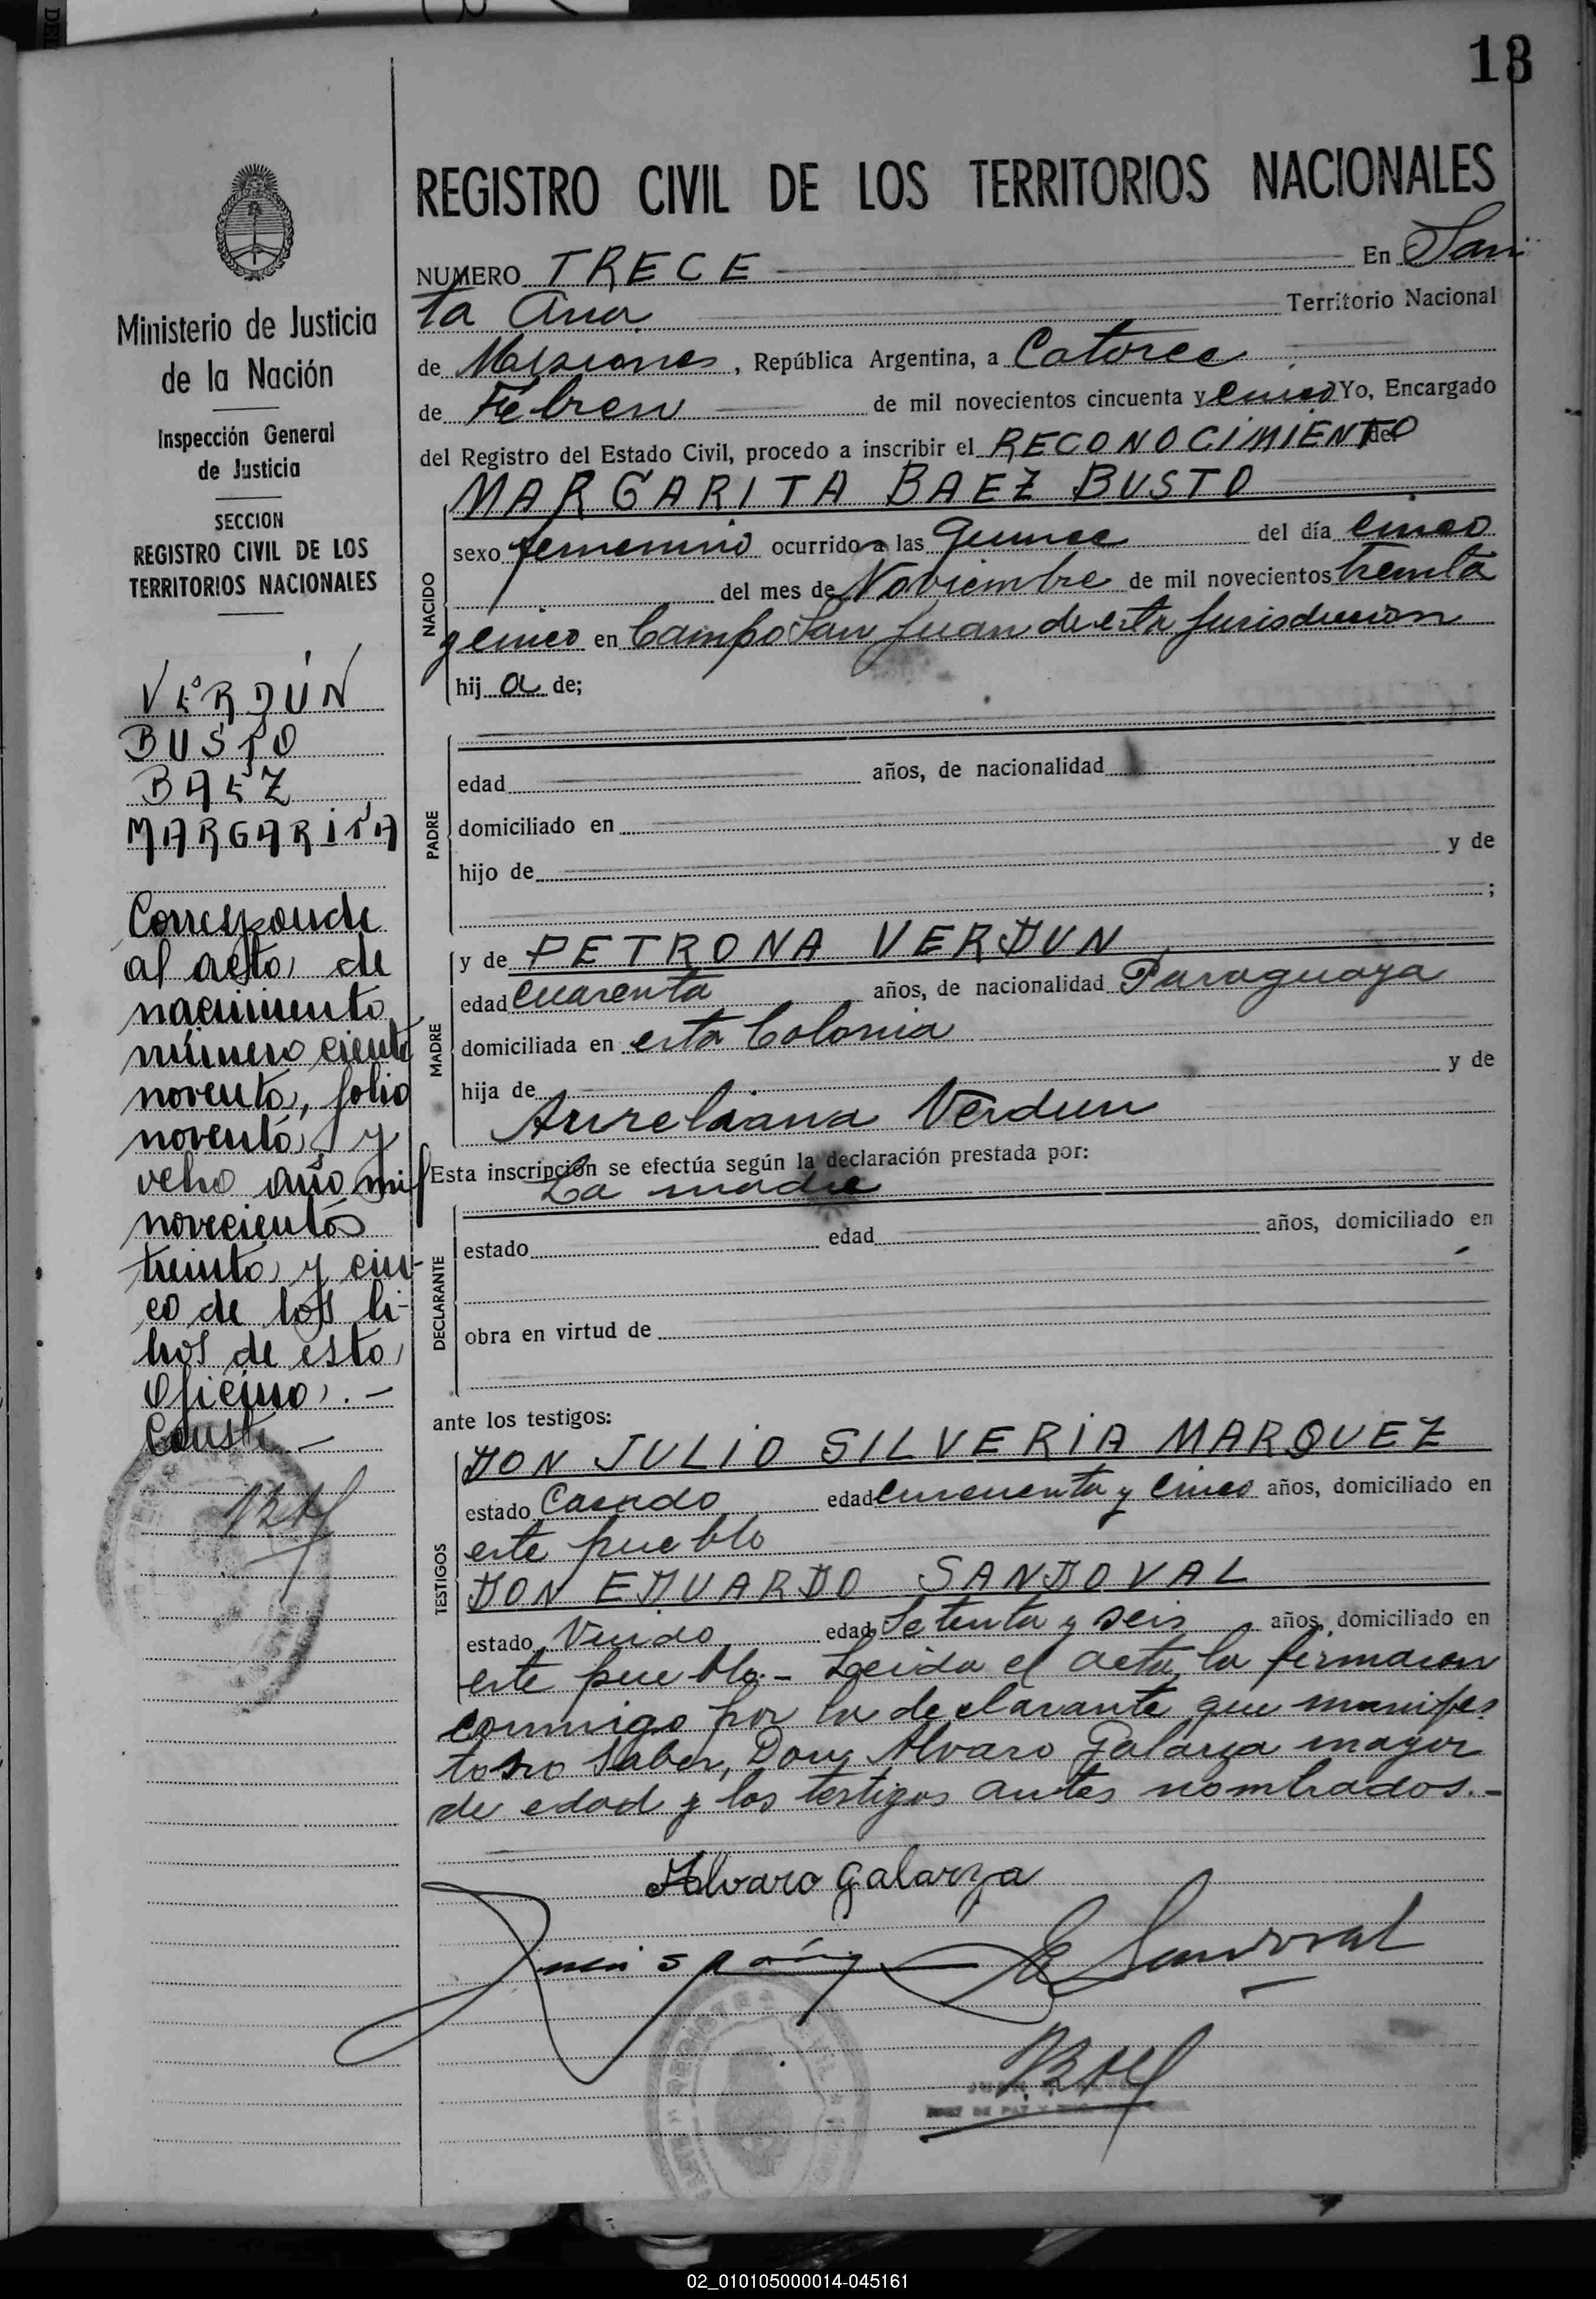 13
Ministerio de Justicia
de la Nación
Inspección General
de Justicia
SECCION
REGISTRO CIVIL DE LOS
TERRITORIOS NACIONALES
VERDÚN
BUSTO
BAEZ
MARGARITA
Corresponde
al acta de
nacimiento
número ciento
noventa, folio
noventa y
ocho año mil
novecientos
treinta y cin-
co de los li-
bros de esta
Oficina.-
Conste.-
REGISTRO CIVIL DE LOS TERRITORIOS NACIONALES
NUMERO TRECE En San
ta Ana Territorio Nacional
de Misiones, República Argentina, a Catorce
de Febrero de mil novecientos cincuenta y cinco Yo, Encargado
del Registro del Estado Civil, procedo a inscribir el RECONOCIMIENTO de
MARGARITA BAEZ BUSTO
NACIDO
sexo femenino ocurrido a las Quince del día cinco
del mes de Noviembre de mil novecientos treinta
y cinco en Campo San Juan de esta Jurisdiccion
hij a de;
PADRE
edad años, de nacionalidad
domiciliado en
hijo de y de
;
MADRE
y de PETRONA VERDUN
edad Cuarenta años, de nacionalidad Paraguaya
domiciliada en esta Colonia
hija de y de
Aureliana Verdun
Esta inscripción se efectúa según la declaración prestada por:
La madre
DECLARANTE
estado edad años, domiciliado en
obra en virtud de
ante los testigos:
TESTIGOS
DON JULIO SILVERIA MARQUEZ
estado Casado edad Cincuenta y Cinco años, domiciliado en
este pueblo
DON EDUARDO SANDOVAL
estado Viudo edad Setenta y seis años, domiciliado en
este pueblo.- Leida el acta, la firmaron
conmigo por la declarante que manifes
to no saber, Don Alvaro Galarza mayor
de edad y los testigos antes nombrados.-
Alvaro Galarza
E Sandoval
JUEZ DE PAZ Y
02_010105000014-045161